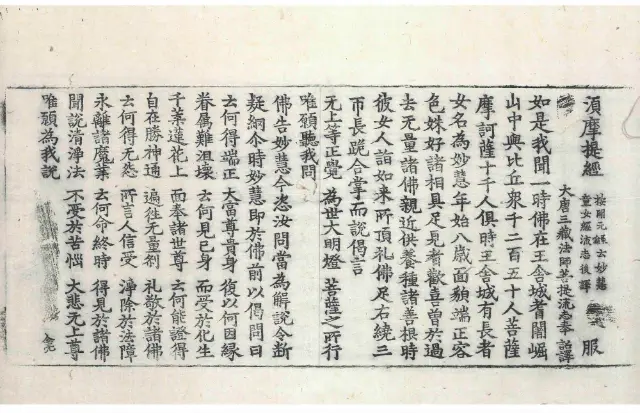 須摩提經 按開元錄云妙慧
童女經流志後譯 服
大唐三藏法師菩提流志奉 詔譯
如是我聞一時佛在王舍城耆闍崛
山中與比丘眾千二百五十人菩薩
摩訶薩十千人俱時王舍城有長者
女名為妙慧年始八歲面貌端正容
色姝好諸相具足見者歡喜曾於過
去无量諸佛親近供養種諸善根時
彼女人詣如來所頂礼佛足右繞三
帀長跪合掌而說偈言
无上等正覺 為世大明燈 菩薩之所行
唯願聽我問
佛告妙慧今恣汝問當為解說令斷
疑網尒時妙慧即於佛前以偈問曰
云何得端正 大富尊貴身 復以何因緣
眷属難沮壞 云何見己身 而受於化生
千葉蓮花上 而奉諸世尊 云何能證得
自在勝神通 遍往无量剎 礼敬於諸佛
云何得无怨 所言人信受 淨除於法障
永離諸魔業 云何命終時 得見於諸佛
聞說清淨法 不受於苦惱 大悲无上尊
唯願為我說